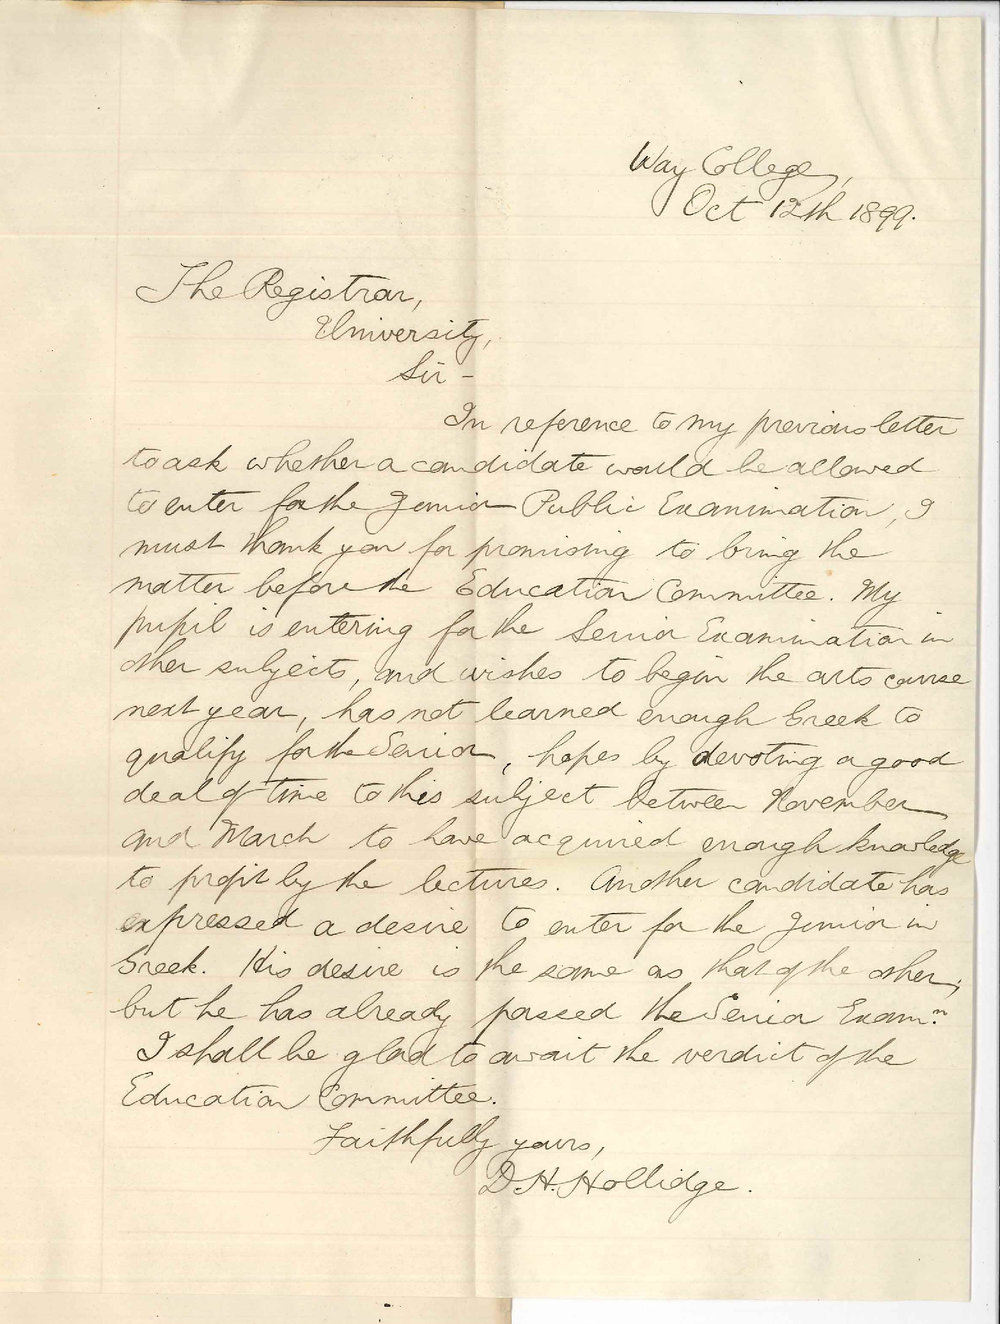 Way College,
Oct 12th 1899.
The Registrar,
University,
Sir -
In reference to my previous letter
to ask whether a candidate would be allowed
to enter for the Junior Public Examination, I
must thank you for promising to bring the
matter before the Education Committee. My
pupil is entering for the Senior Examination in
other subjects, and wishes to begin the arts course
next year, has not learned enough Greek to
qualify for the Senior, hopes by devoting a good
deal of time to this subject between November
and March to have acquired enough knowledge
to profit by the lectures. Another candidate has
expressed a desire to enter for the Junior in
Greek. His desire is the same as that of the other,
but he has already passed the Senior Exam.n
I shall be glad to await the verdict of the
Education Committee.
Faithfully yours,
D. H. Hollidge.